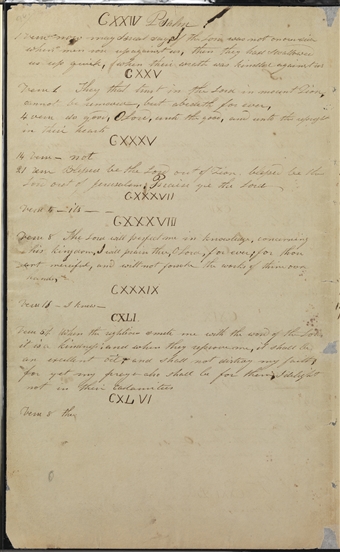 CXXIV Psalm
1 vers now may Israel say, if the Lord was not on our side
when men rose up against us, then they had swallowed
us up quick, when their wrath was kindled against us
CXXV
vers 1 They that trust in the Lord in mount Zion,
cannot be removed, but abideth for ever,
4 vers do good, O Lord, unto the good, and unto the upright
in their hearts
CXXXV
14 vers not
21 vers Blessed be the Lord out of Zion, blessed be the
Lord out of Jerusalem, Praise ye the Lord
CXXXVII
vers 5 its
CXXXVIII
vers 8 The Lord will perfect me in knowledge, concerning
his kingdom, I will praise thee, O Lord, for ever, for thou
art merciful, and will not forsake the works of thine own
hands
CXXXIX
vers 16 I know
CXLI
vers 5 When the righteous smite me with the word of the Lord
it is a kindness, and when they reprove me, it shall be
an excellent oil, and shall not destroy my faith;
for yet my prayer also shall be for them; I delight
not in their calamities
CXLVI
vers 8 the